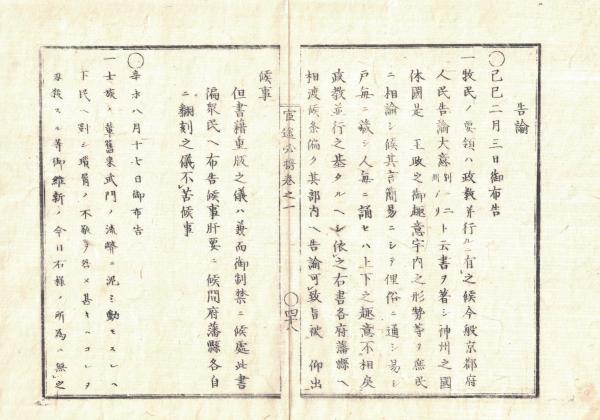 告諭
〇己巳二月三日御布告
一牧民ノ要領ハ政教並行ルヽ有之候今般京都府
人民告諭大意別冊一二ノリト云書ヲ著シ神州之國
体國是 王政之御趣意宇内之形勢等ヲ庶民
ニ相論シ候其言簡易ニシテ俚俗ニ通シ易シ
戸毎ニ藏シ人毎ニ誦セハ上下之趣意不相戻
政教並行之基タルヘシ依之右書各府藩縣ヘ
相渡候条偏ク其部内ヘ告諭可致旨被 仰出
候事
但書籍重版之儀ハ兼而御制禁ニ候處此書
偏衆民ヘ布告候事肝要ニ候間府藩縣各自
ニ翻刻之儀不苦候事
〇辛未八月十七日御布告
一士族ノ輩舊来武門ノ流弊ニ泥ミ動モスレハ
下民ヘ對シ瑣屑ノ不敬ヲ咎メ甚キハコレヲ
殺スル等御維新ノ今日右様ノ所為ハ無之
官途必携巻之一
〇四十八